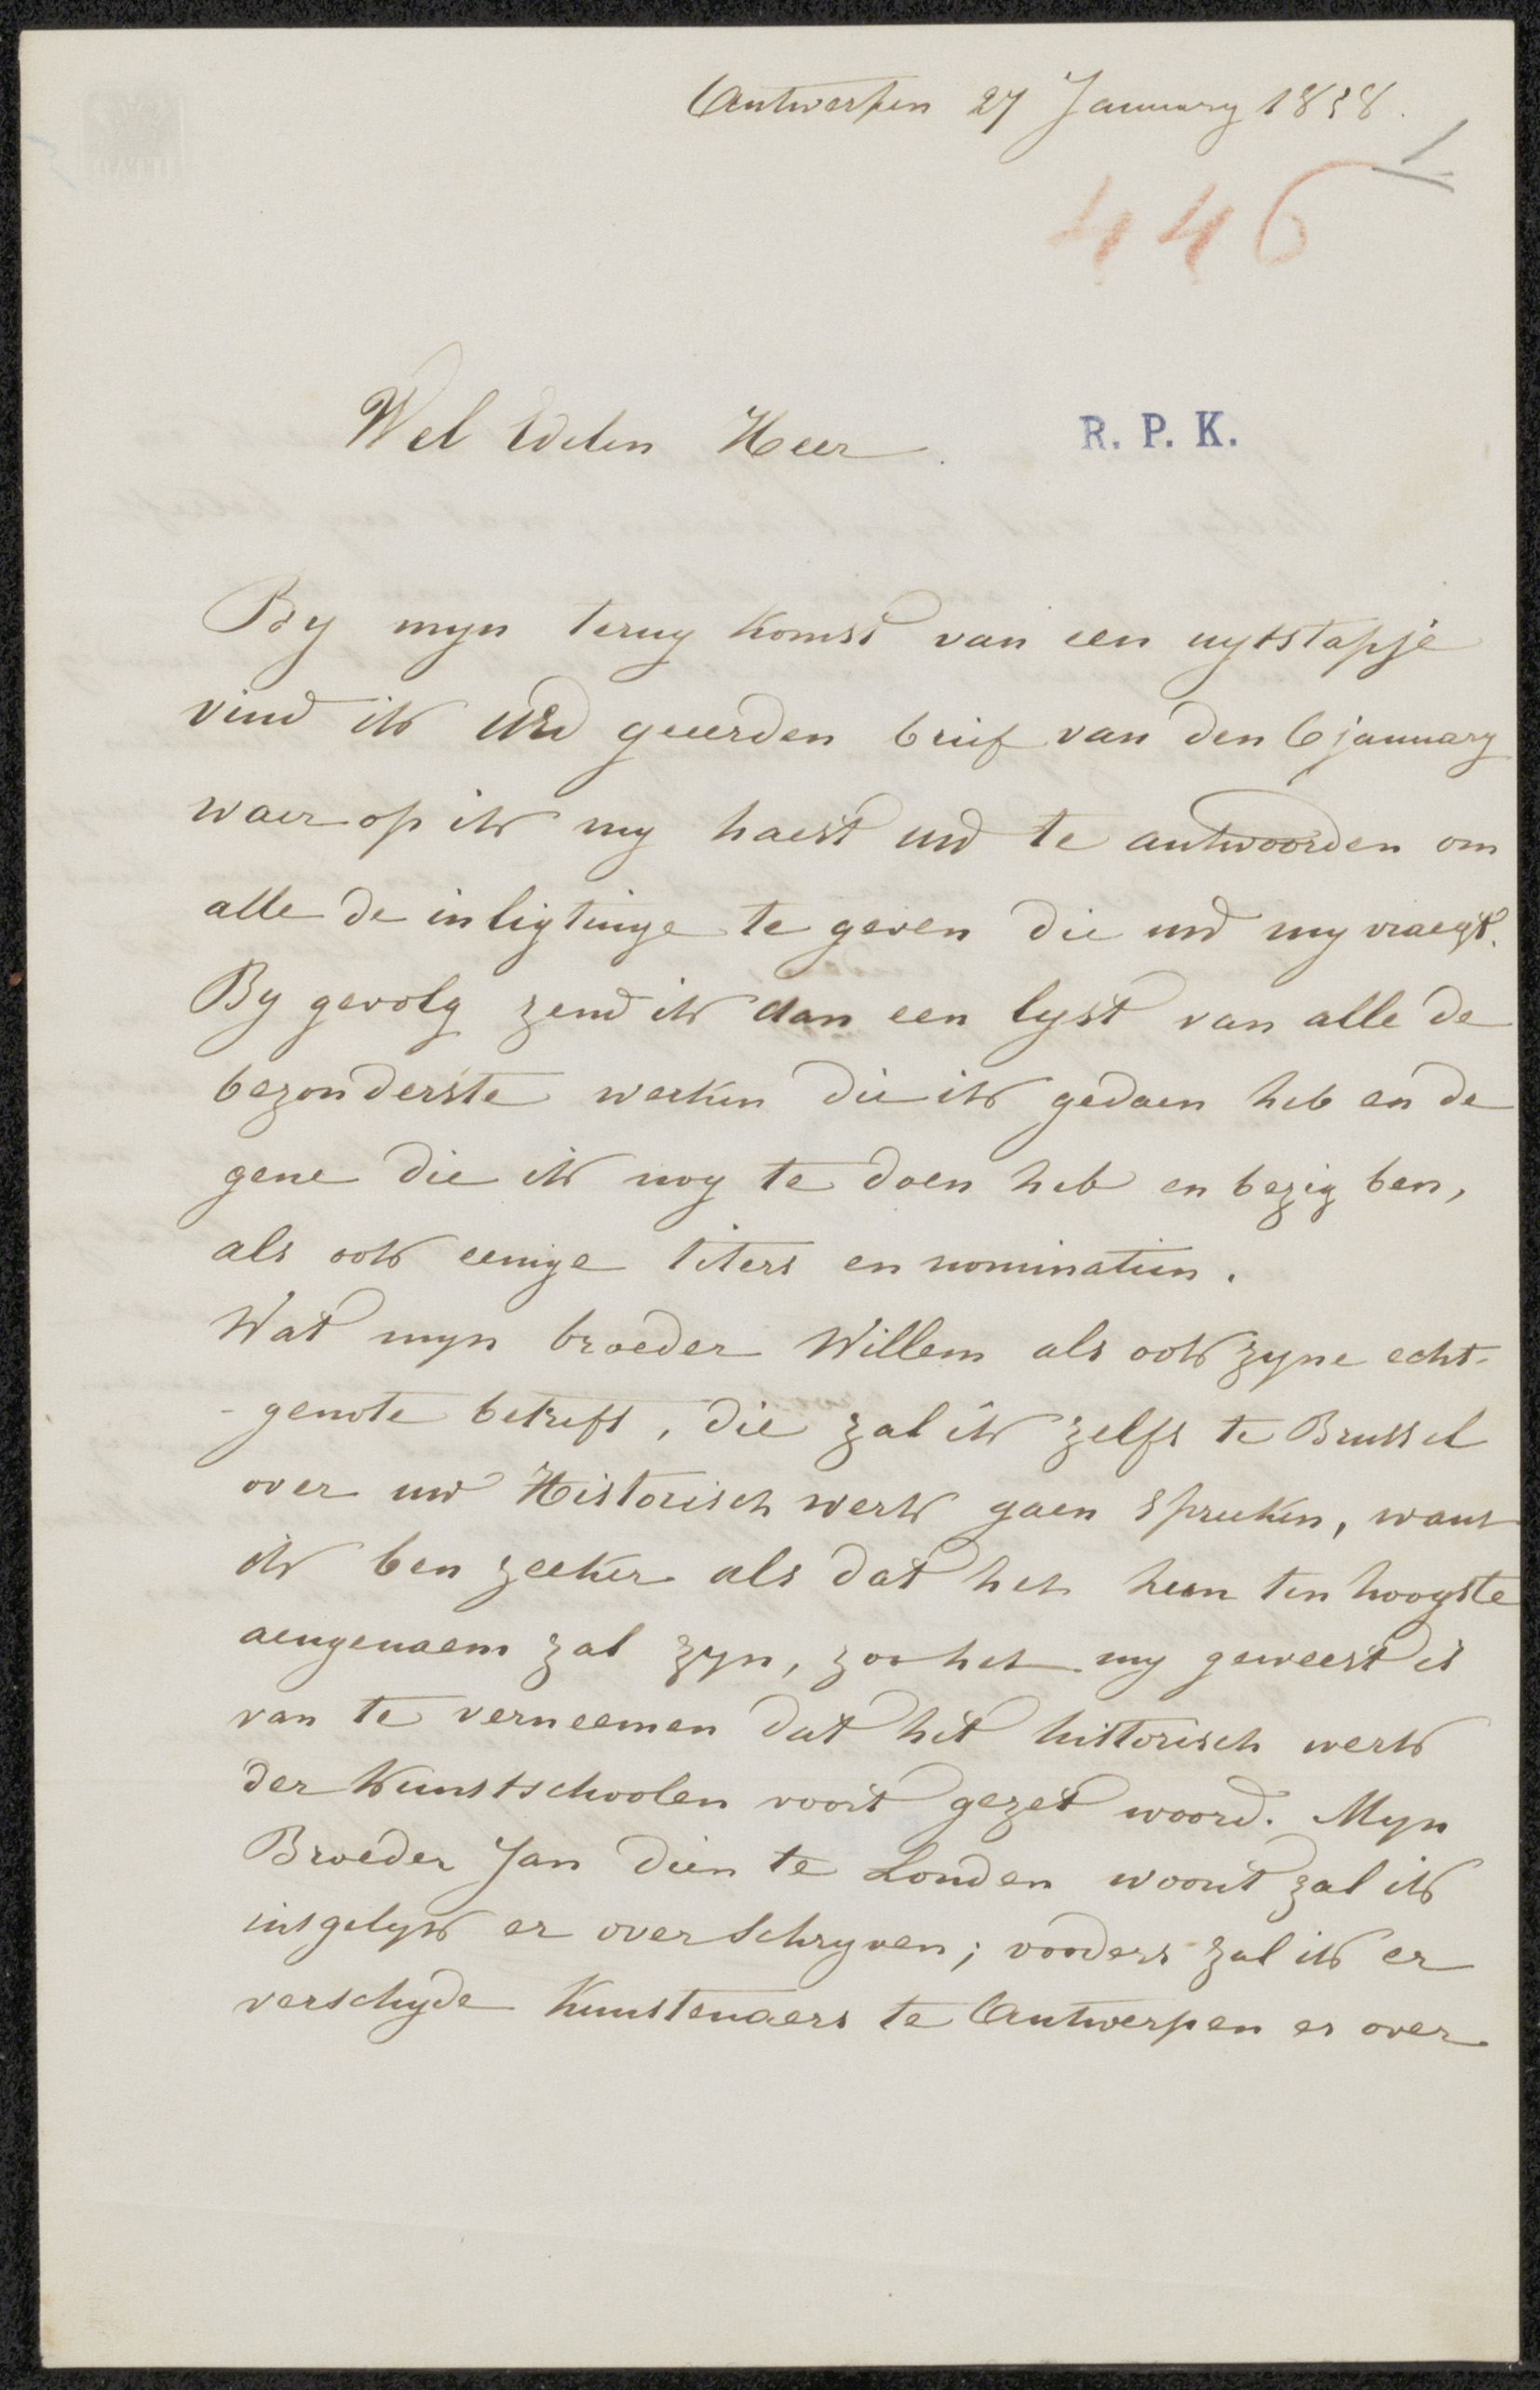 Antwerpen 27 January 1858.
446
Wel Edelen Heer.
R. P. K.
By myn terug komst van een uytstapje
vind ik UEd geeerden brief van den 6 january
waer op ik my haest uwd te antwoorden om
alle de inligtinge te geven die uwd my vraegt.
By gevolg zend ik dan een lyst van alle de
bezonderste werken die ik gedaen heb en de
gene die ik nog te doen heb en bezig ben,
als ook eenige titers en nominatien.
Wat myn broeder Willem als ook zyne echt-
-genote betreft, die zal ik zelfs te Brussel
over uw Historisch werk gaen spreeken, want
ik ben zeeker als dat het hun ten hoogste
aengenaem zal zyn, zoo het my geweest is
van te verneemen dat het historisch werk
der Kunstschoolen voort gezet woord. Myn
Broeder Jan dien te Londen woont zal ik
insgelyk er over schryven; voorders zal ik er
verschyde Kunstenaers te Antwerpen er over